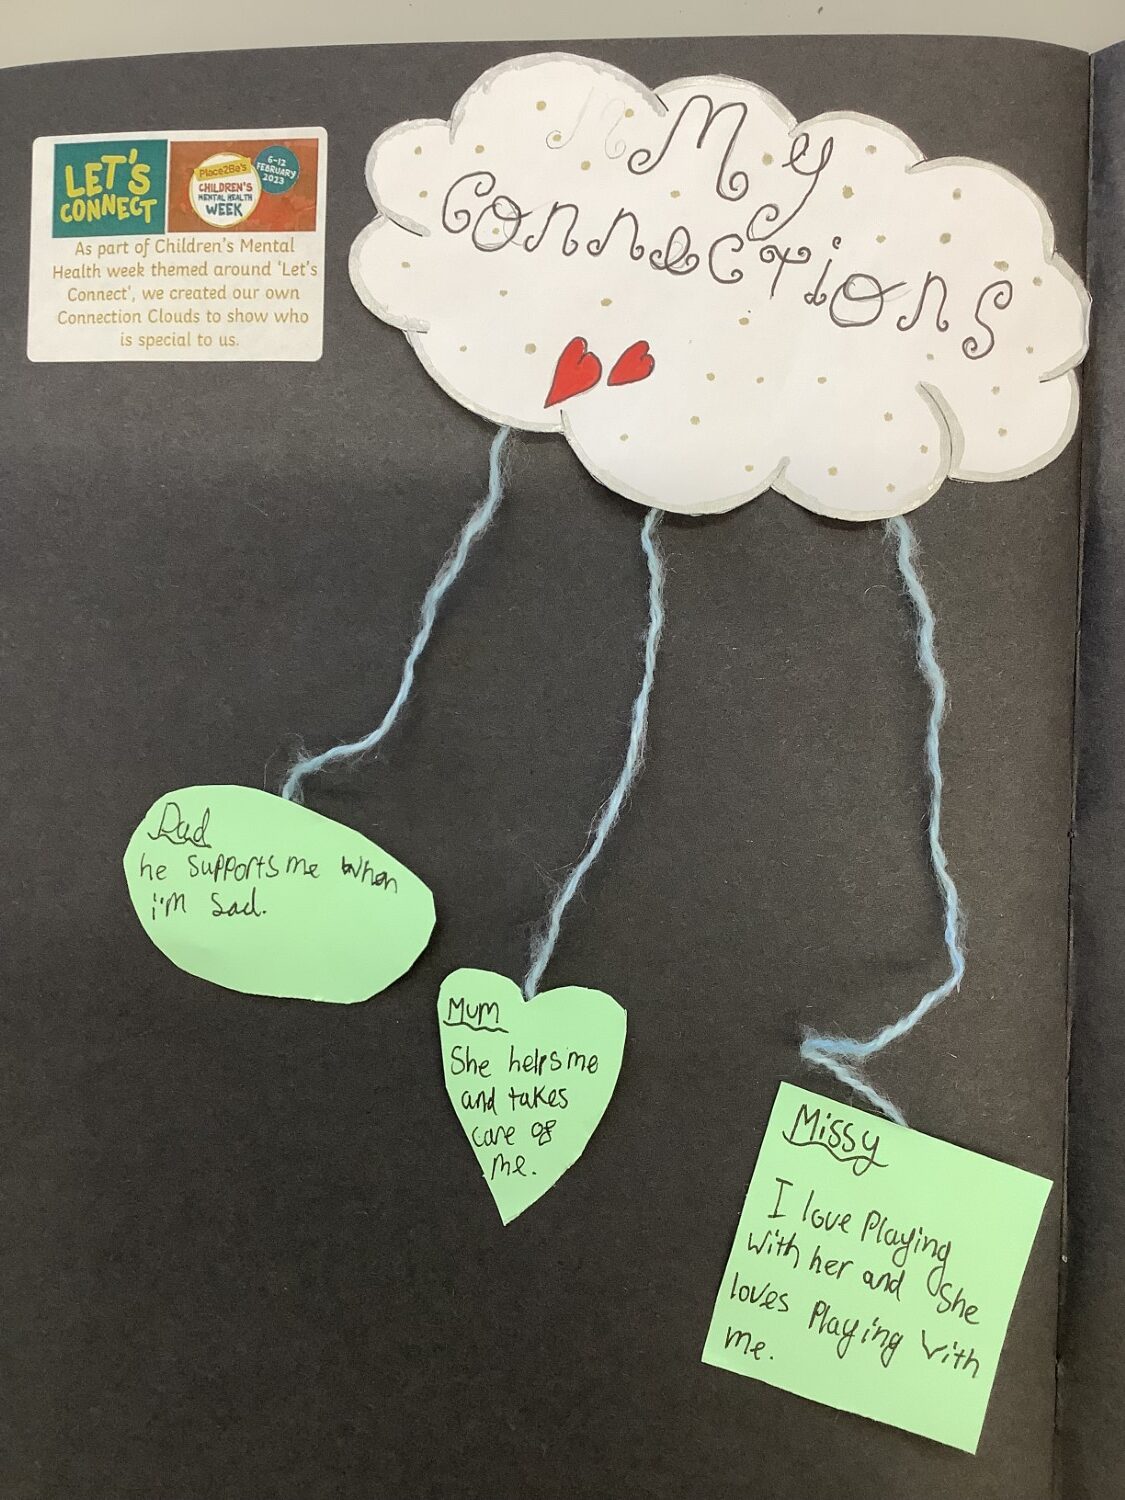 LET'S
CONNECT
Place2Be's
CHILDREN'S
MENTAL HEALTH
WEEK
6-12
FEBRUARY
2023
As part of Children's Mental
Health week themed around 'Let's
Connect', we created our own
Connection Clouds to show who
is special to us.
My
Connections
Dad
he supports me when
i'm sad.
Mum
She helps me
and takes
care of
me.
Missy
I love Playing
with her and She
loves Playing with
me.